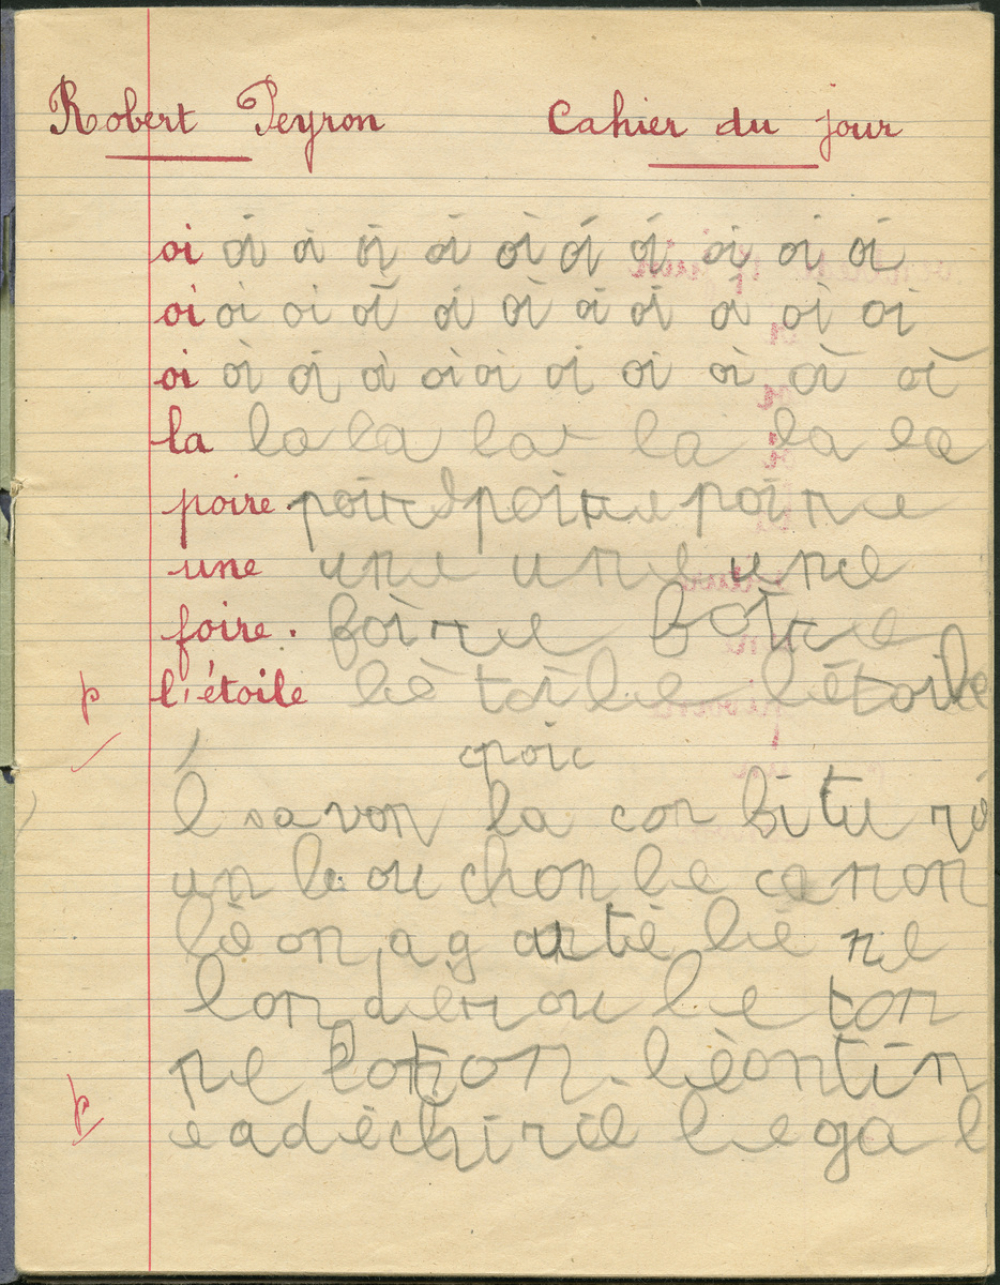 Robert Peyron Cahier du jour
oi oi oi oi oi oi oi oi oi oi oi
oi oi oi oi oi oi oi oi oi oi oi
oi oi oi oi oi oi oi oi oi oi oi
la la la la la la la
poire. poire poire poire
une une une une
foire. foire foire
l'étoile lé toile létoile
poic
l savon la con bi tu ré
un bou chon le canon
léon a g outé lé ne
lon de rou le ton
ne coton léontin
e a déchiré le gal